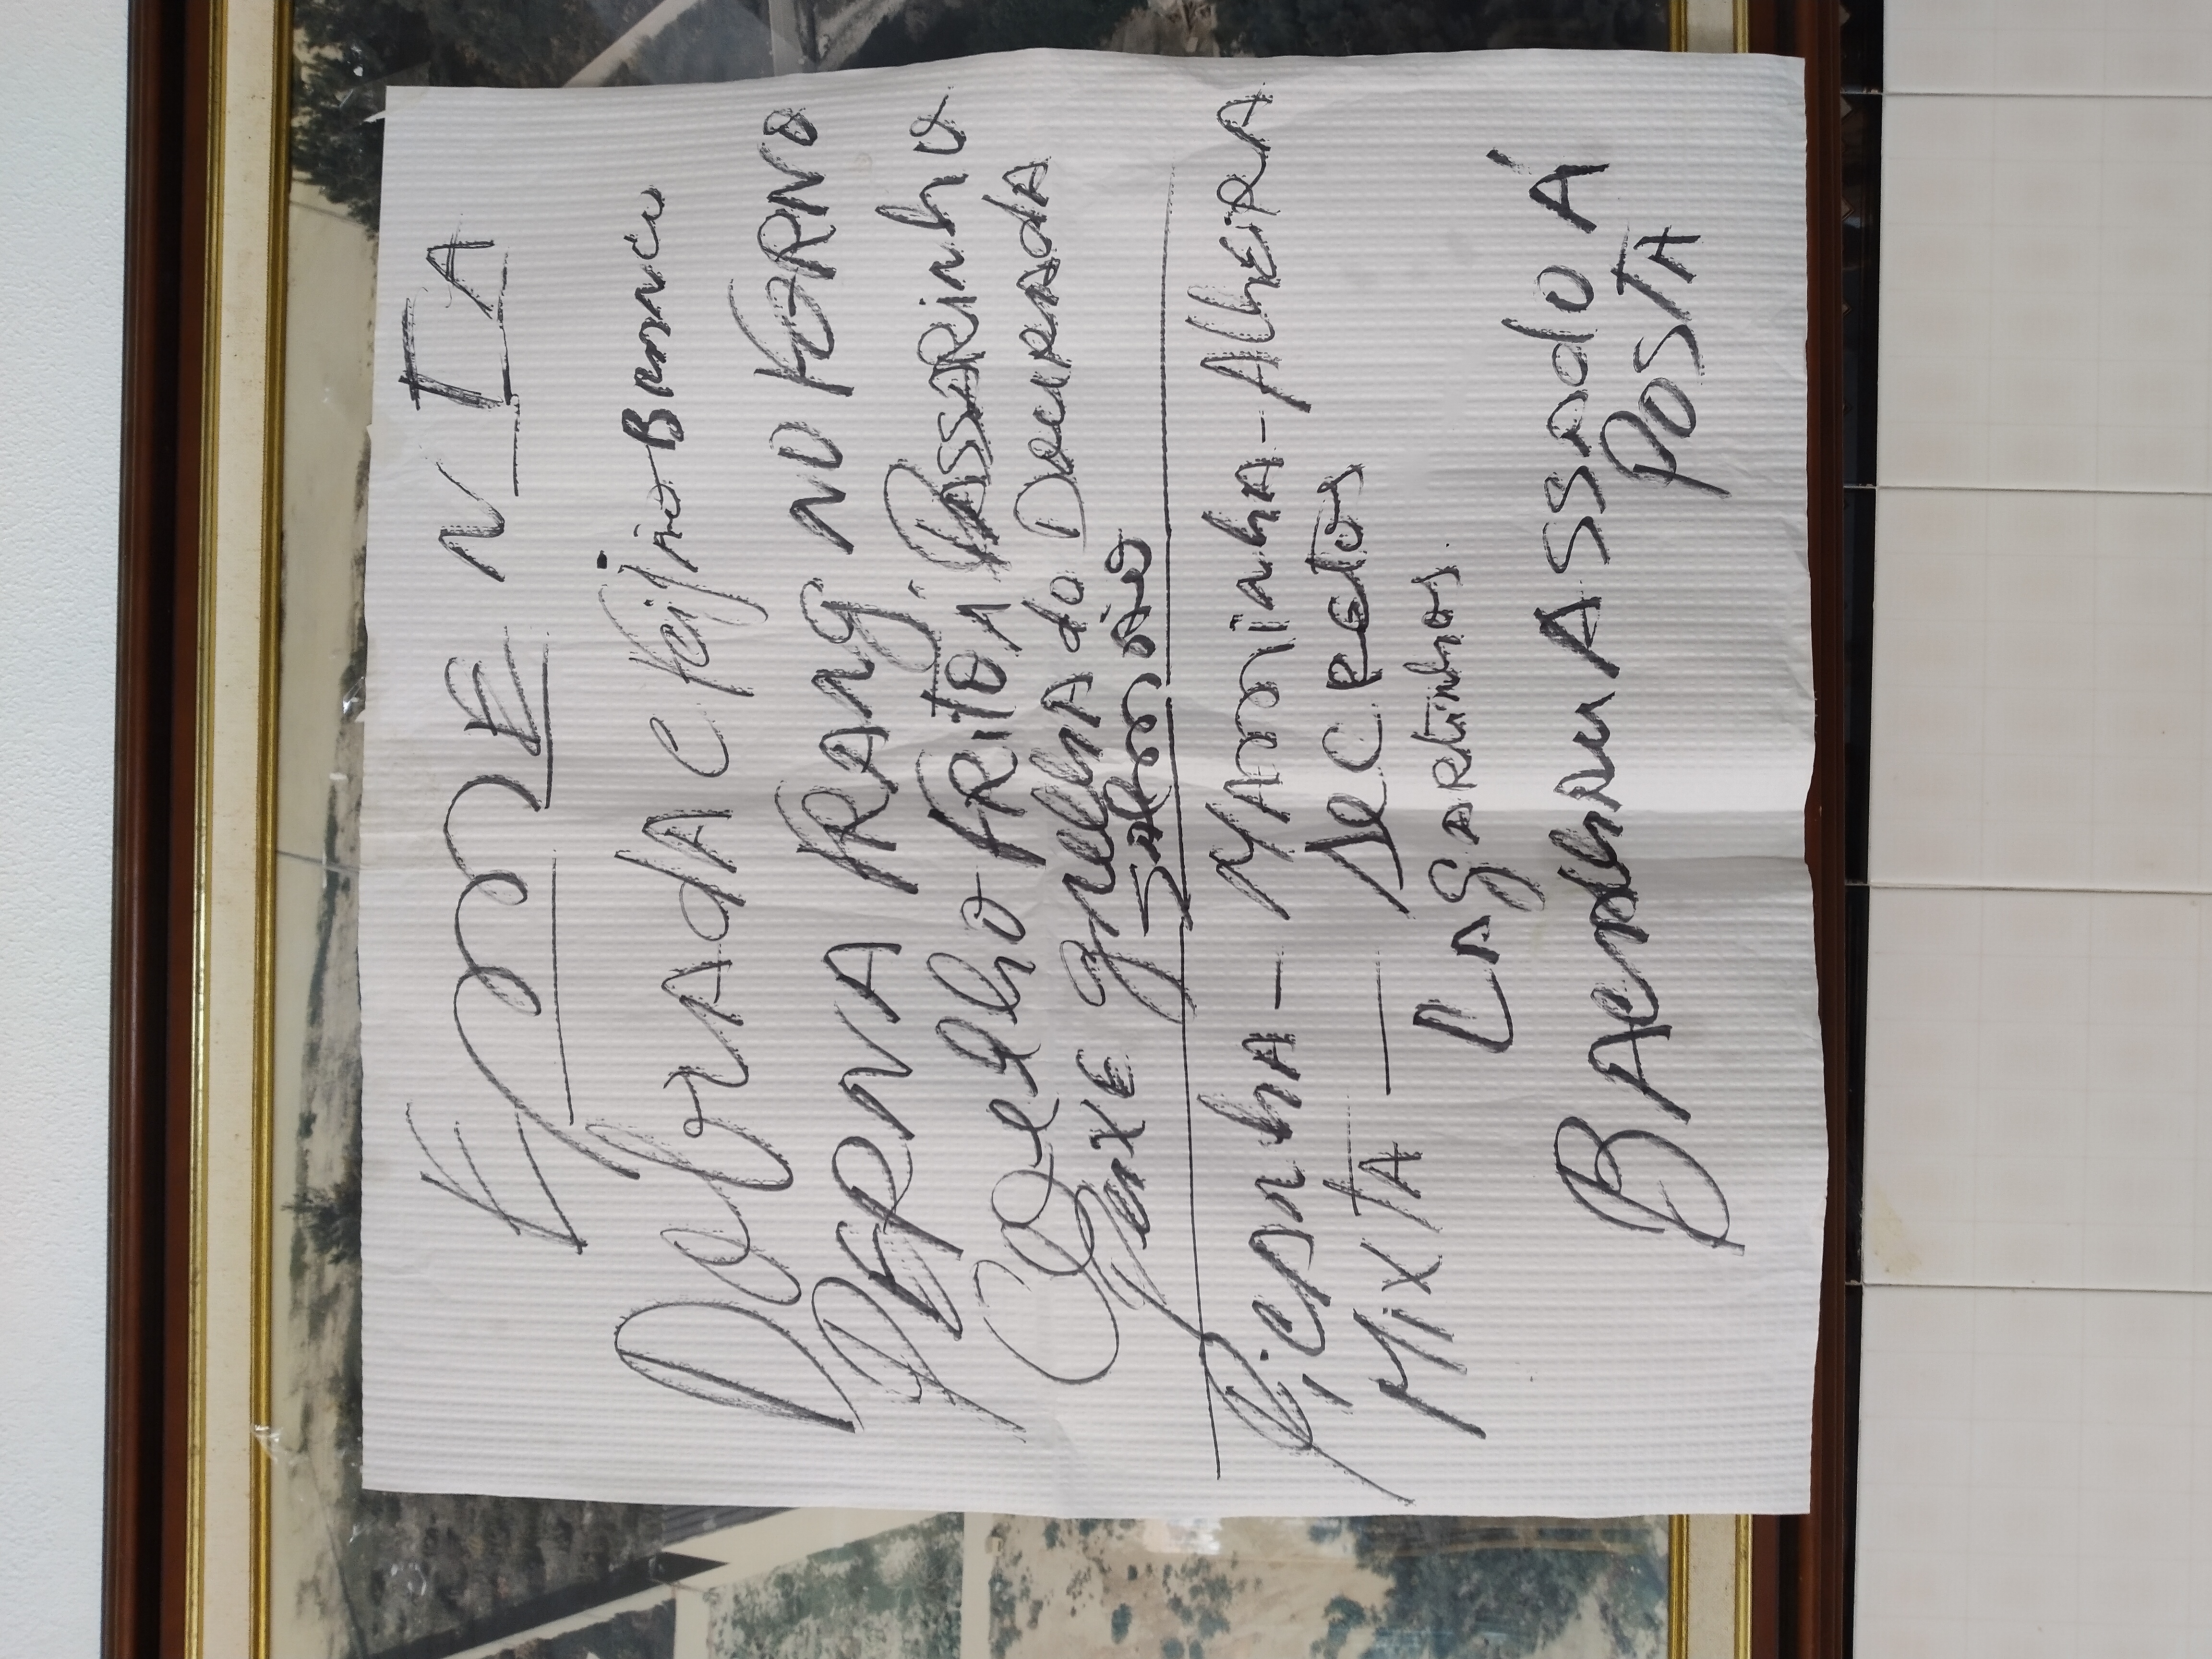 EMENTA
DobradA c feijão Branco
PERNA FRANG. NO FORNO
Coelho FRITO À PASSARinho
Peixe grelha do DouradA
SAlmão
PicAnhA - MAminhA - AlheirA
MixTA - SecRetos
LAgARtinhos.
BAcAlhau ASSAdO À
POSTA